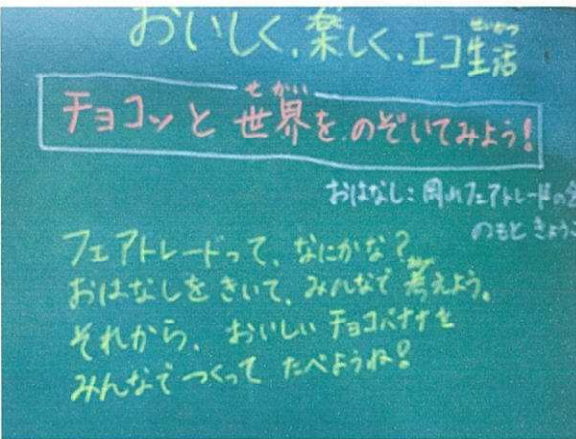 おいしく、楽しく、エコ生活
せいかつ
せかい
チョコッと世界を、のぞいてみよう!
おはなし:岡山フェアトレードの会
のもと きょうこ
フェアトレードって、なにかな?
おはなしをきいて、みんなで考えよう。
それから、おいしいチョコバナナを
みんなでつくって たべようね!